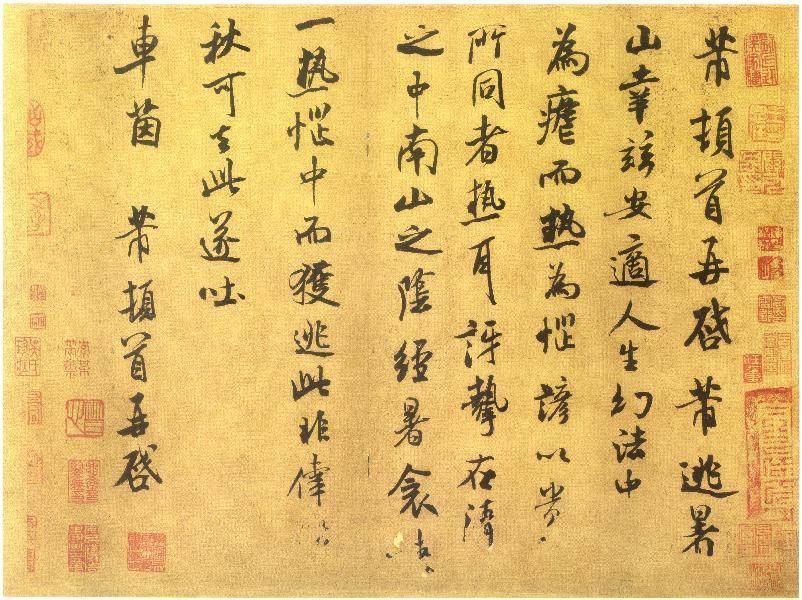 芾頓首再啓芾逃暑
山幸茲安適人生幻法中
為瘧而熱為惱諺以貴
所同者熱耳訝摯在
之中南山之陰經暑衾
一熱惱中而獲逃此非偉
秋可去此遂吐
車茵 芾頓首再啓